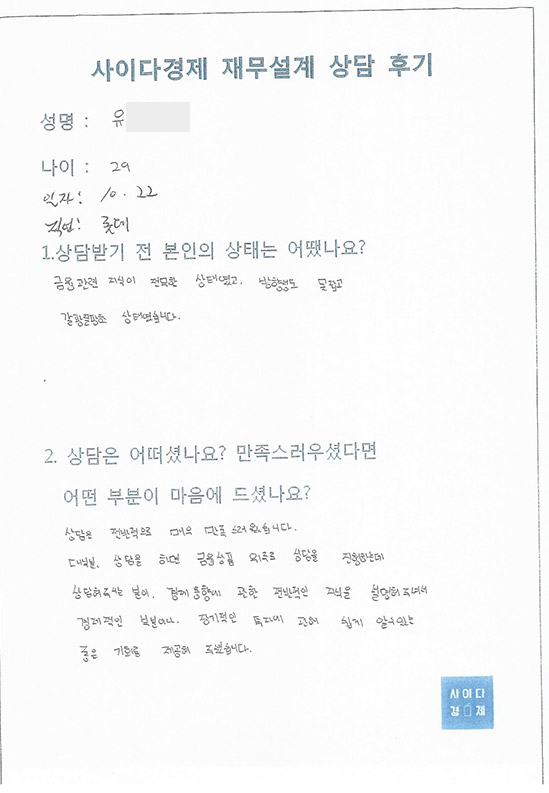 사이다경제 재무설계 상담 후기
성명 : 유
나이 : 29
일자: 10. 22
직업: 롯데
1.상담받기 전 본인의 상태는 어땠나요?
금융관련 지식이 전무한 상태였고. 방향성도 몰랐고
갈팡질팡한 상태였습니다.
2. 상담은 어떠셨나요? 만족스러우셨다면
어떤 부분이 마음에 드셨나요?
상담은 전반적으로 매우 만족스러웠습니다.
대부분, 상담을 하면 금융상품 위주로 상담을 진행하는데
상담해주시는 분이, 경제동향에 관한 전반적인 지식을 설명해주셔서
경제적인 부분이나, 장기적인 투자에 관해 쉽게 알수있는
좋은 기회를 제공해 주셨습니다.
사이다
경제